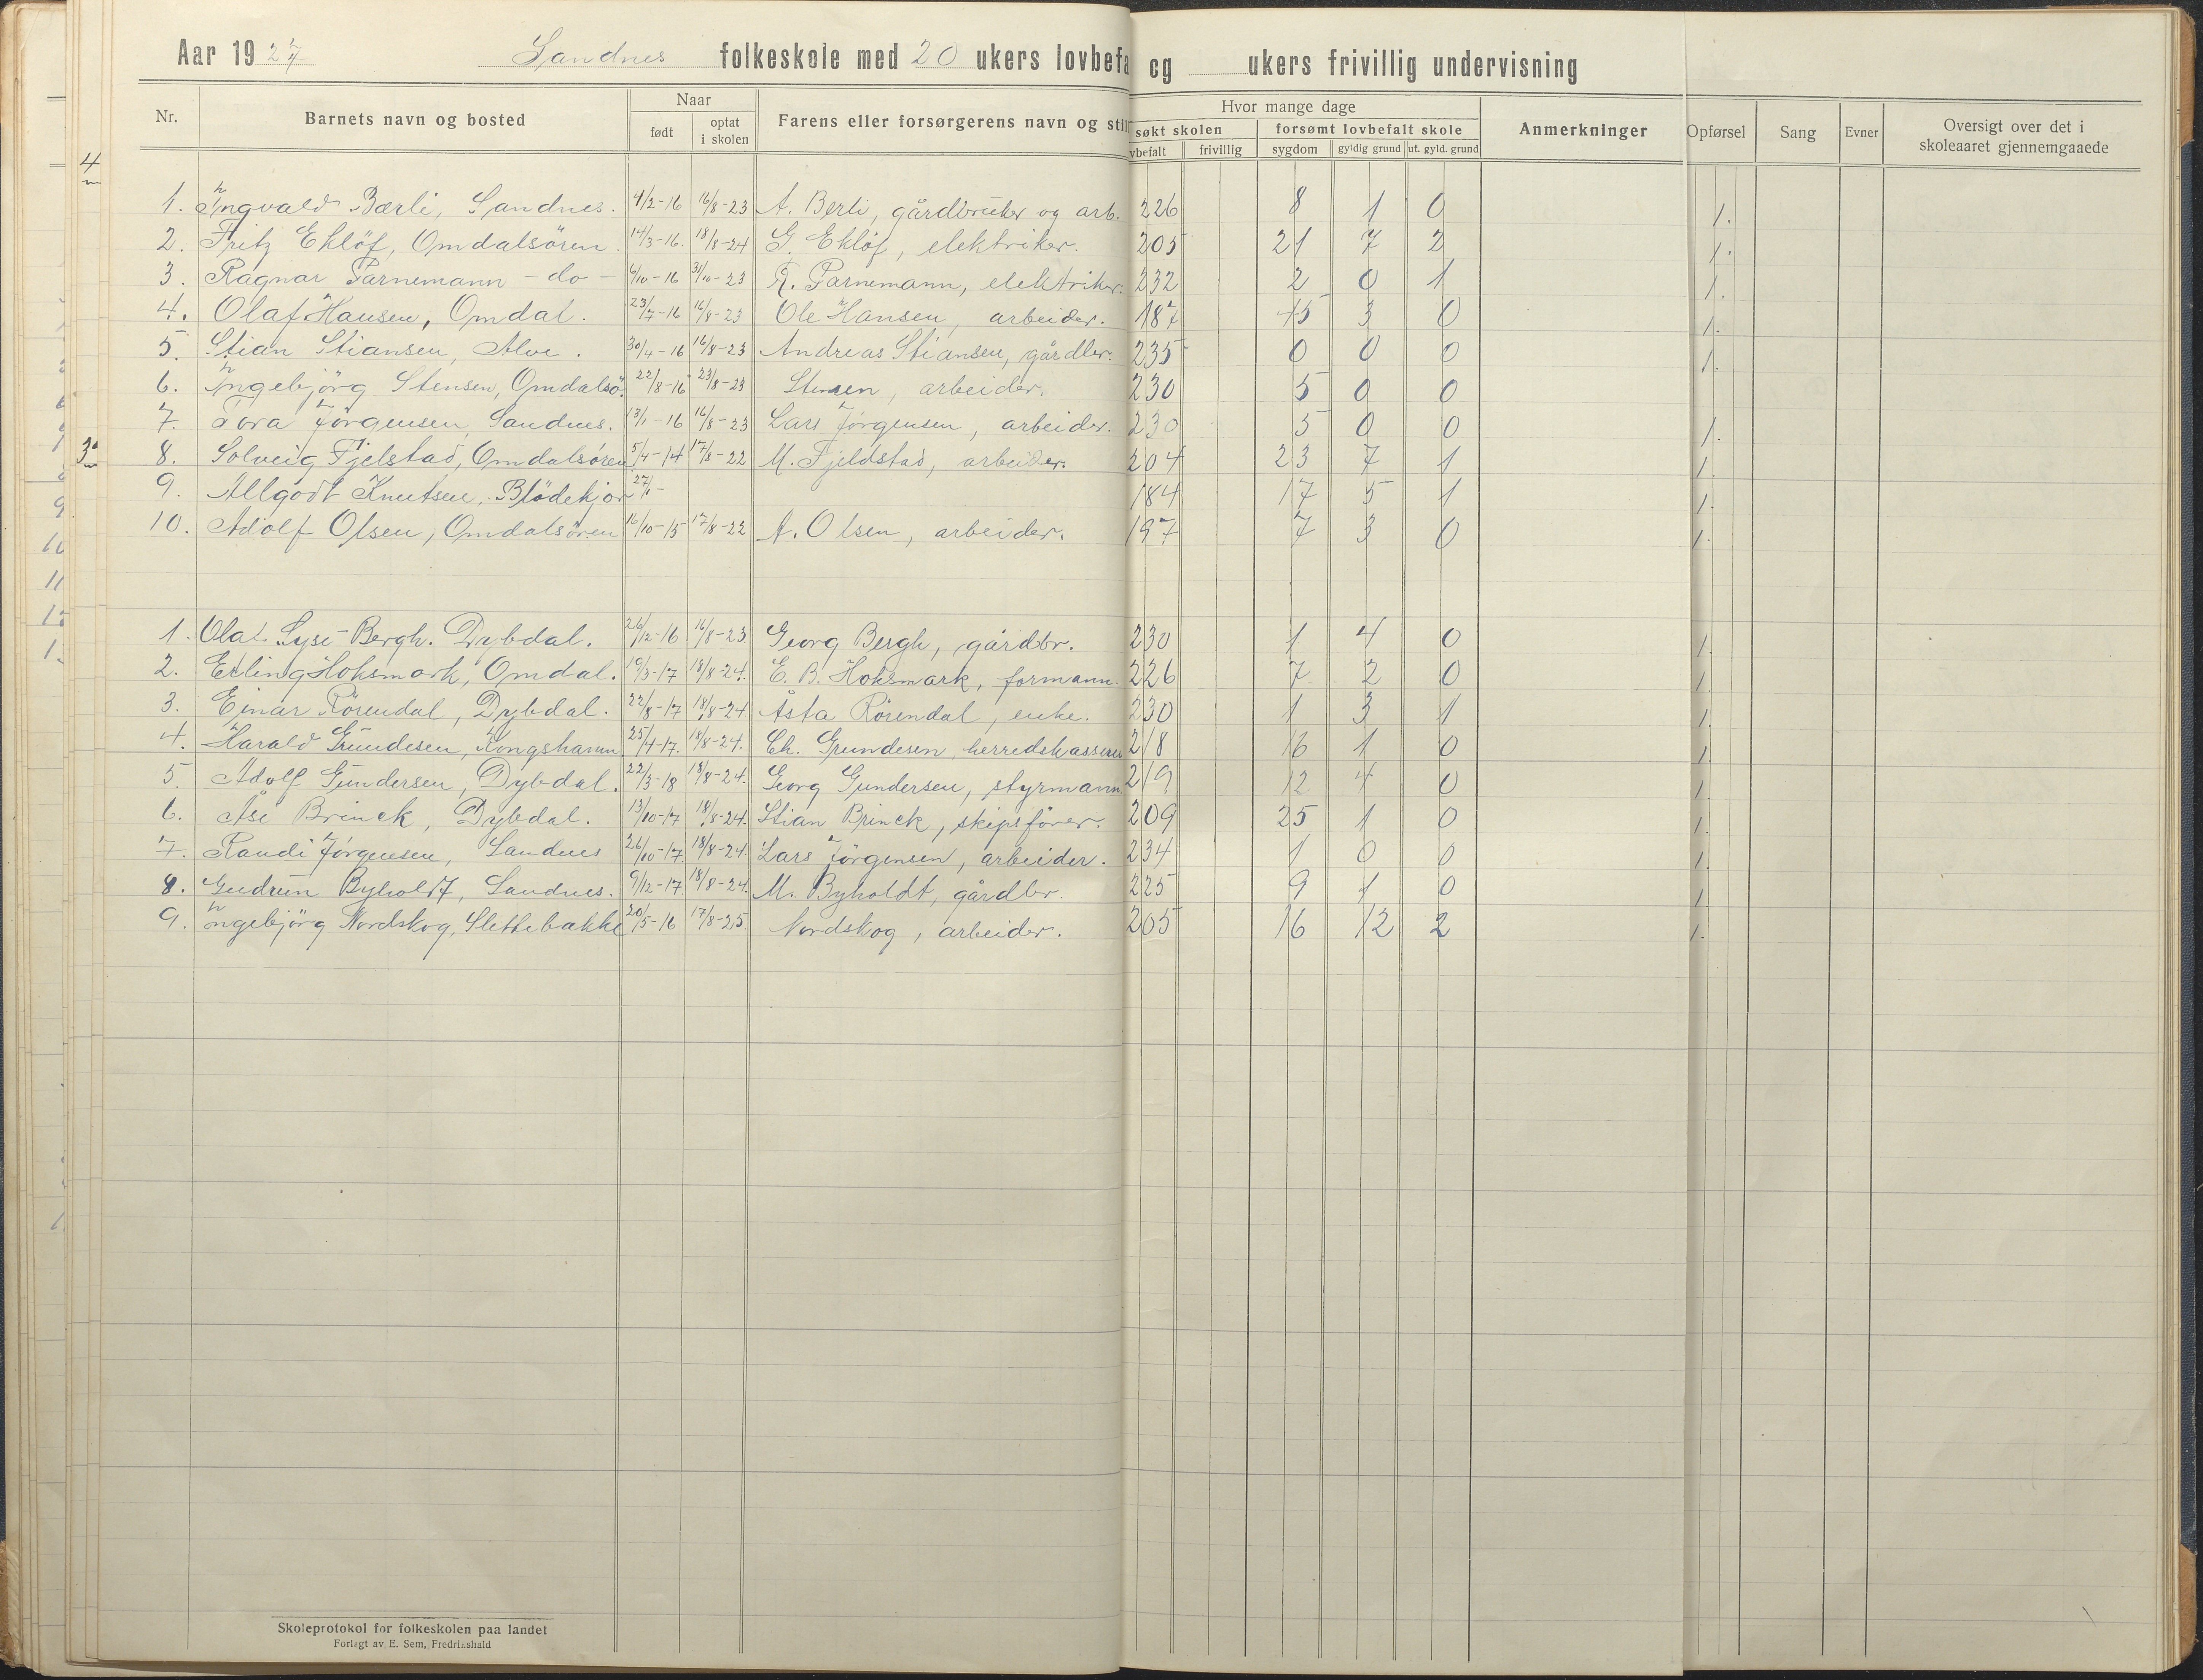 Aar 1927 Sandnes folkeskole med 20 ukers lovbefa og ukers frivillig undervisning
Nr. Barnets navn og bosted Naar født optat i skolen Farens eller forsørgerens navn og stil Hvor mange dage søkt skolen vbefalt frivillig forsømt lovbefalt skole sygdom gyldig grund ut. gyld. grund Anmerkninger Opførsel Sang Evner Oversigt over det i skoleaaret gjennemgaaede
4
1. Ingvald Bærli, Sandnes. 4/2-16 16/8-23 A. Berli, gårdbruker og arb. 226 8 1 0 1.
2. Fritz Eklöf, Omdalsören. 14/3-16. 18/8-24 G. Eklöf, elektriker. 205 21 7 2 1.
3. Ragnar Parnemann - do - 6/10-16 31/10-23 R. Parnemann, elektriker. 232 2 0 1 1.
4. Olaf Hansen, Omdal. 23/7-16 16/8-23 Ole Hansen, arbeider. 187 45 3 0 1.
5. Stian Stiansen, Alve. 30/4-16 16/8-23 Andreas Stiansen, gårdbr. 235 0 0 0 1.
6. Ingebjörg Stensen, Omdalsö. 22/8-16 23/8-23 Stensen, arbeider. 230 5 0 0
7. Tora Jörgensen, Sandnes. 13/1-16 16/8-23 Lars Jörgensen, arbeider. 230 5 0 0 1.
3
8. Solveig Fjelstad, Omdalsören 5/4-14 17/8-22 M. Fjeldstad, arbeider. 204 23 7 1 1.
9. Allgodt Knutsen, Blödekjær 27/1- 184 17 5 1 1.
10. Adolf Olsen, Omdalsören 16/10-15 17/8-22 A. Olsen, arbeider. 197 7 3 0 1.
1. Olaf Syse-Bergh. Dybdal. 26/12-16 16/8-23 Georg Bergh, gårdbr. 230 1 4 0 1.
2. Erling Hoksmark, Omdal. 19/3-17 18/8-24. E. B. Hoksmark, formann. 226 7 2 0 1.
3. Einar Rörendal, Dybdal. 22/8-17 18/8-24. Åsta Rörendal, enke. 230 1 3 1 1.
4. Harald Grundesen, Kongshamn 25/4-17. 18/8-24. Ch. Grundesen, herredskasserer 218 16 1 0 1.
5. Adolf Gundersen, Dybdal. 22/3-18 18/8-24. Georg Gundersen, styrmann 219 12 4 0 1.
6. Åse Brinck, Dybdal. 13/10-17 18/8-24. Stian Brinck, skipsförer. 209 25 1 0 1.
7. Randi Jörgensen, Sandnes 26/10-17. 18/8-24. Lars Jörgensen, arbeider. 234 1 0 0 1.
8. Gudrun Byholdt, Sandnes. 9/12-17. 18/8-24. M. Byholdt, gårdbr. 225 9 1 0 1.
9. Ingebjörg Nordskog, Slettebakke 20/5-16 17/8-25. Nordskog, arbeider. 205 16 12 2 1.
Skoleprotokol for folkeskolen paa landet
Forlagt av E. Sem, Fredrikshald